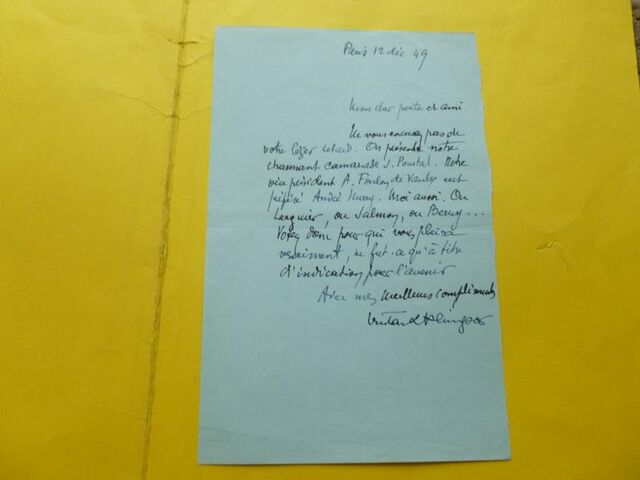 Paris 12 déc 49
Mon cher poète et ami
Ne vous ennuyez pas de
votre léger retard. On présente notre
charmant camarade J. Pourtal. Notre
vice président A. Foulon de Vaulx eut
préféré André Mary. Moi aussi. Ou
ou Salmon, ou Berry...
Votez donc pour qui vous plaira
vraiment, ne fut-ce qu'à titre
d'indication pour l'avenir
Avec mes meilleurs compliments